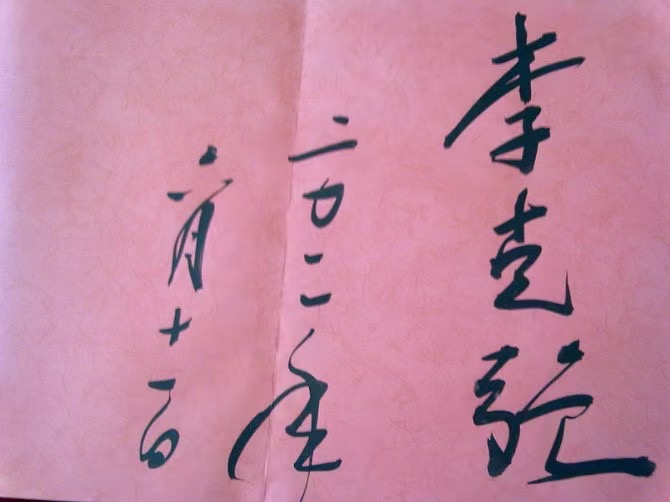 李克强
二〇二年
六月十一日